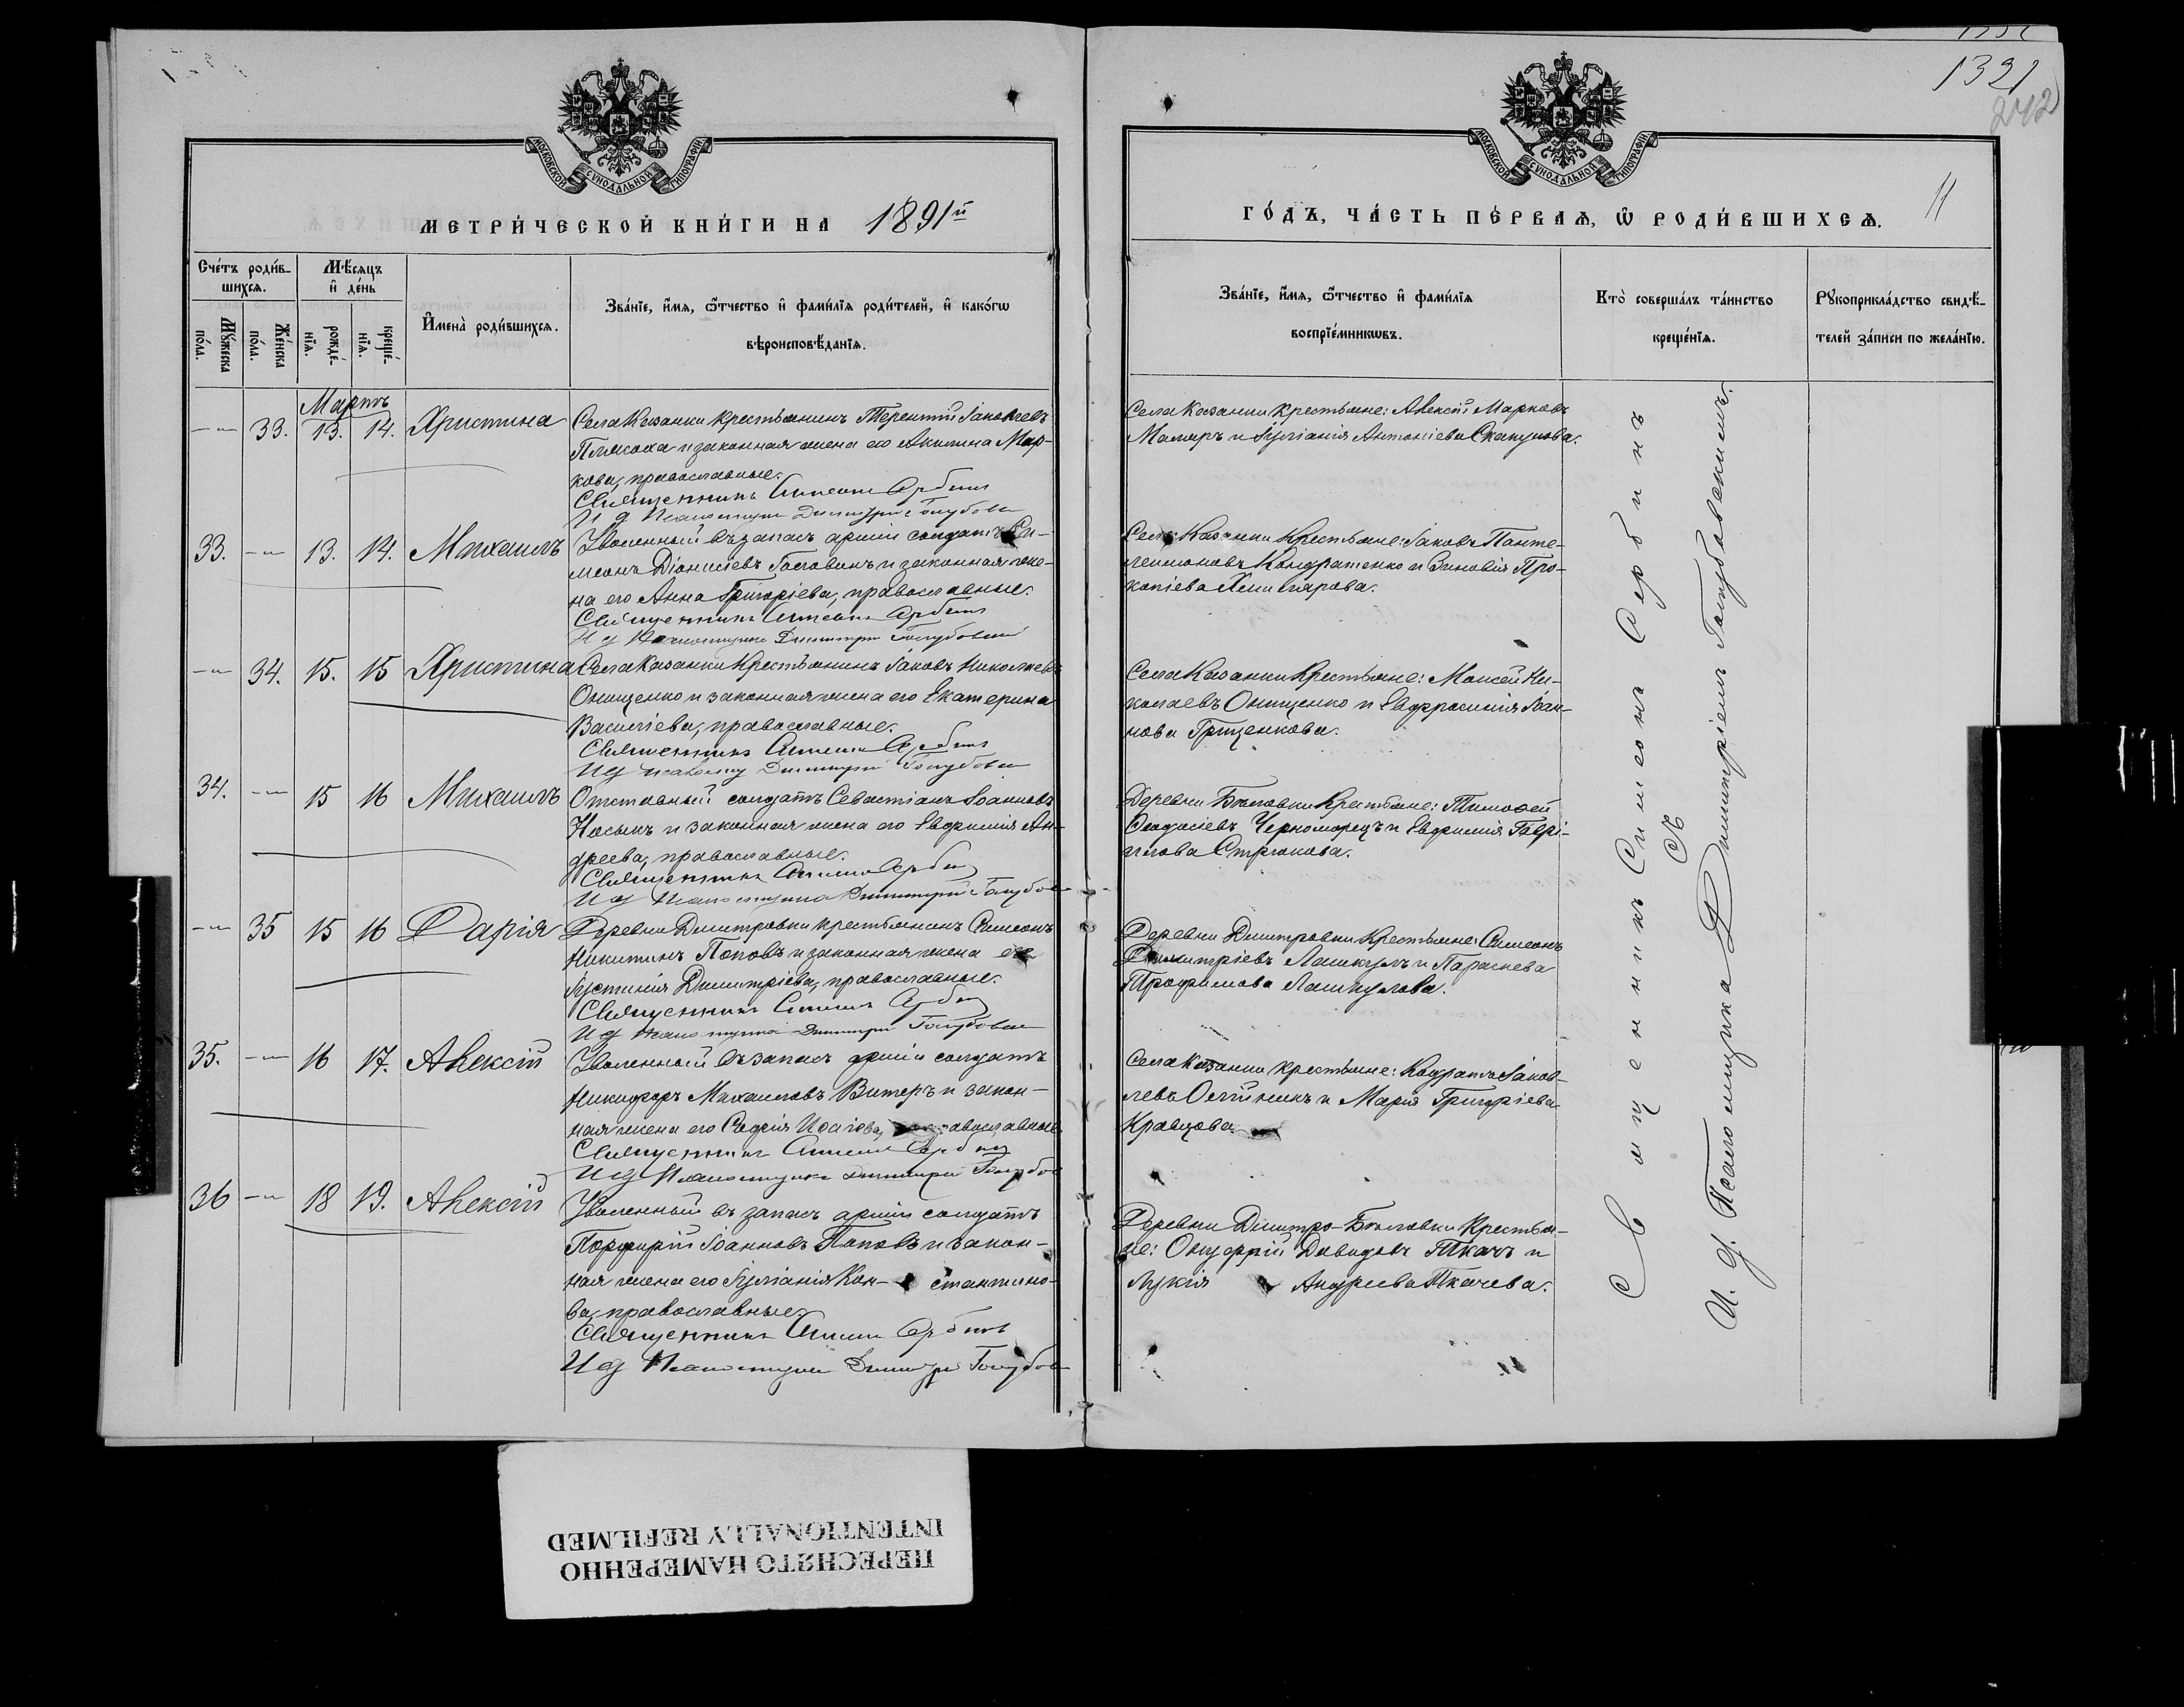 1321
242
11
МОСКОВСКОЙ СѴНОДАЛЬНОЙ ТИПОГРАФІИ
МЕТРИ́ЧЕСКОЙ КНИ́ГИ НА 1891й
Сче́тъ роди́в-
шихсѧ.
Мѣ́сѧцъ
и҆ де́нь
Мꙋ́жеска
по́ла.
Же́нска
по́ла.
рожде́-
нїѧ.
креще́-
нїѧ.
И҆мена̀ роди́вшихсѧ.
Зва́нїе, и҆́мѧ, ѻ҆́тчество и҆ фами́лїѧ роди́телей, и҆ како́гѡ
вѣроисповѣ́данїѧ.
Мартъ
-"- 33. 13. 14. Христина Села Казанки крестьянинъ Терентій Іаковлевъ
и законная жена его Акилина Мар-
кова, православные.
Священникъ Симеонъ Сербинъ
И д Псаломщика Димитрій Голубов
33. -"- 13. 14. Михаилъ Уволенный въ запасъ арміи солдатъ Си-
меонъ Діонисіевъ Головинъ и законная же-
на его Анна Григоріева, православные.
Священникъ Симеонъ Сербинъ
И д Псаломщика Димитрій Голубов
-"- 34. 15. 15 Христина Села Казанки Крестьянинъ Іаковъ Николаевъ
Онищенко и законная жена его Екатерина
Василіева, православные.
Священникъ Симеонъ Сербинъ
И д Псаломщ Димитрій Голубов
34. -"- 15 16 Михаилъ Отставный солдатъ Севастіанъ Іоанновъ
Носыкъ и законная жена его Евфимія Ан-
дреева, православные.
Священникъ Симеонъ Серби
И д Псаломщика Димитрій Голубов
-"- 35 15 16 Дарія Деревни Димитровки крестьянинъ Симеонъ
Никитинъ Поповъ и законная жена его
Іустинія Димитріева, православные.
Священникъ Симеонъ Сербин
И д Псаломщика Димитрій Голубов
35. -"- 16 17. Алексій Уволенный въ запасъ арміи солдатъ
Никифоръ Михаиловъ Витеръ и закон-
ная жена его Софія Исаіева, православные
Священникъ Симеонъ Сербин
И д Псаломщика Димитрій Голубов
36 -"- 18 19. Алексій Уволенный въ запасъ арміи солдатъ
Порфирій Іоанновъ Поповъ и закон-
ная жена его Іуліанія Кон- стантино-
ва, православные.
Священникъ Симеонъ Сербинъ
И д Псаломщика Димитрій Голубов
МОСКОВСКОЙ СѴНОДАЛЬНОЙ ТИПОГРАФІИ
ГО́ДЪ, ЧА́СТЬ ПЕ́РВАѦ, Ѡ҆ РОДИ́ВШИХСѦ.
Зва́нїе, и҆́мѧ, ѻ҆́тчество и҆ фами́лїѧ
воспрїе́мникѡвъ.
Кто̀ соверша́лъ та́инство
креще́нїѧ.
Рꙋкоприкла́дство свидѣ́-
телей за́писи по жела́нїю.
Села Казанки крестьяне: Алексій Марковъ
Маляръ и Іуліанія Антоніева Скакунова.
Села Казанки Крестьяне: Іаковъ Панте-
леимоновъ Кондратенко и Зиновія Про-
копіева
Села Казанки Крестьяне: Моисей Ни-
колаевъ Онищенко и Евфросинія Іоан-
нова Гриценкова.
Деревни Бѣловки Крестьяне: Тимофей
Феодосіевъ Черноморецъ и Евфимія Гаврі-
илова Стрюкова.
Деревни Димитровки Крестьяне: Симеонъ
Димитріевъ Лашкулъ и Параскева
Трофимова Лашкулова.
Села Казанки крестьяне: Кодратъ Іаков-
левъ Олійникъ и Марія Григоріева
Кравцова.
Деревни Димитро-Бѣловки Крестья-
не: Онуфрій Давидовъ Ткачъ и
Лукія Андреева Ткачева.
Священникъ Симеонъ Сербинъ
Съ
И. д. Псаломщика Димитріемъ Голубовскимъ.
ПЕРЕСНЯТО НАМЕРЕННО
INTENTIONALLY REFILMED